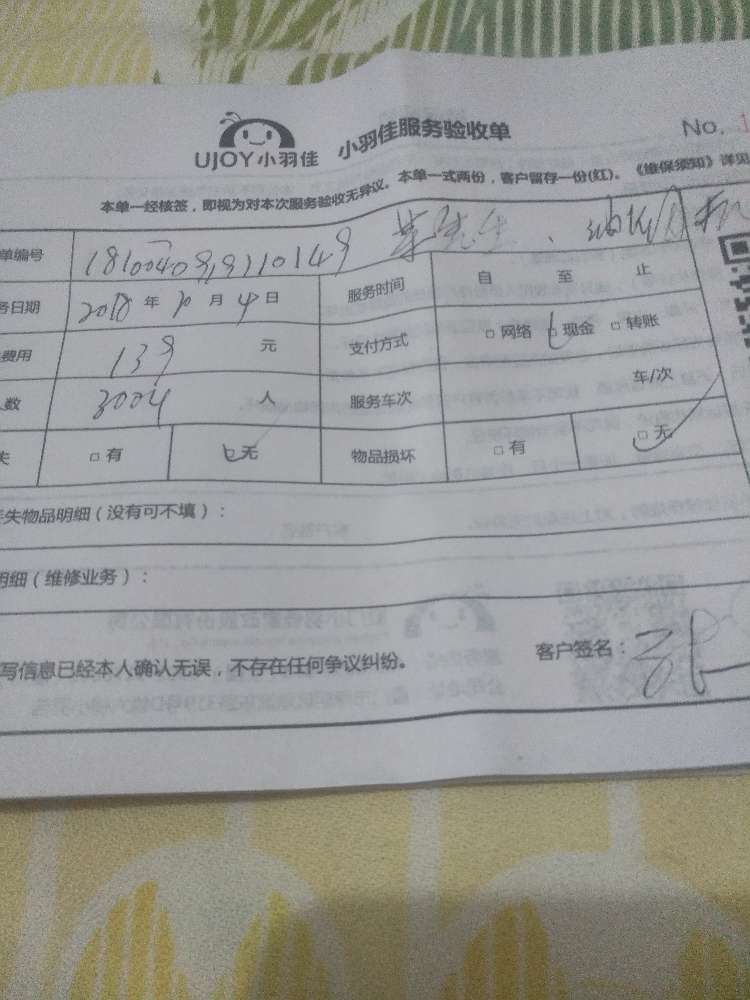 UJOY小羽佳 小羽佳服务验收单 No. 1
本单一经核签，即视为对本次服务验收无异议。本单一式两份，客户留存一份(红)。《维保须知》详见
单编号
务日期 2018 年 10 月 4 日 服务时间 自 至 止
费用 139 元 支付方式 □ 网络 □ 现金 □ 转账
人数 3004 人 服务车次 车/次
失 □ 有 □ 无 物品损坏 □ 有 □ 无
丢失物品明细（没有可不填）：
明细（维修业务）：
写信息已经本人确认无误，不存在任何争议纠纷。 客户签名：